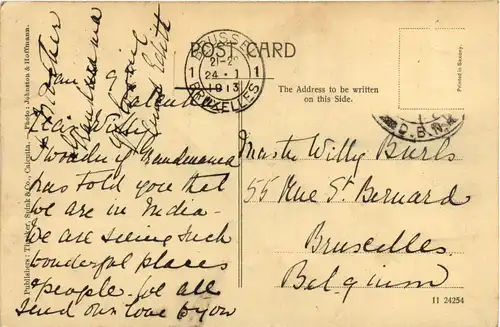 POST CARD
The Address to be written
on this Side.
Printed in Saxony.
Publishers: Thacker, Spink & Co., Calcutta. Photo: Johnston & Hoffmann.
BRUSSEL
21-2
24 · 1
1 1
1913
BRUXELLES
D.B.N.
Jan 9 Calcutta
Dear Willy
I wonder if Grandmama
has told you that
we are in India -
We are seeing such
wonderful places
& people. We all
send our love to you
Grandmama
Aunt Edith
Master Willy Burls
55 Rue St Bernard
Bruxelles
Belgium
11 24254